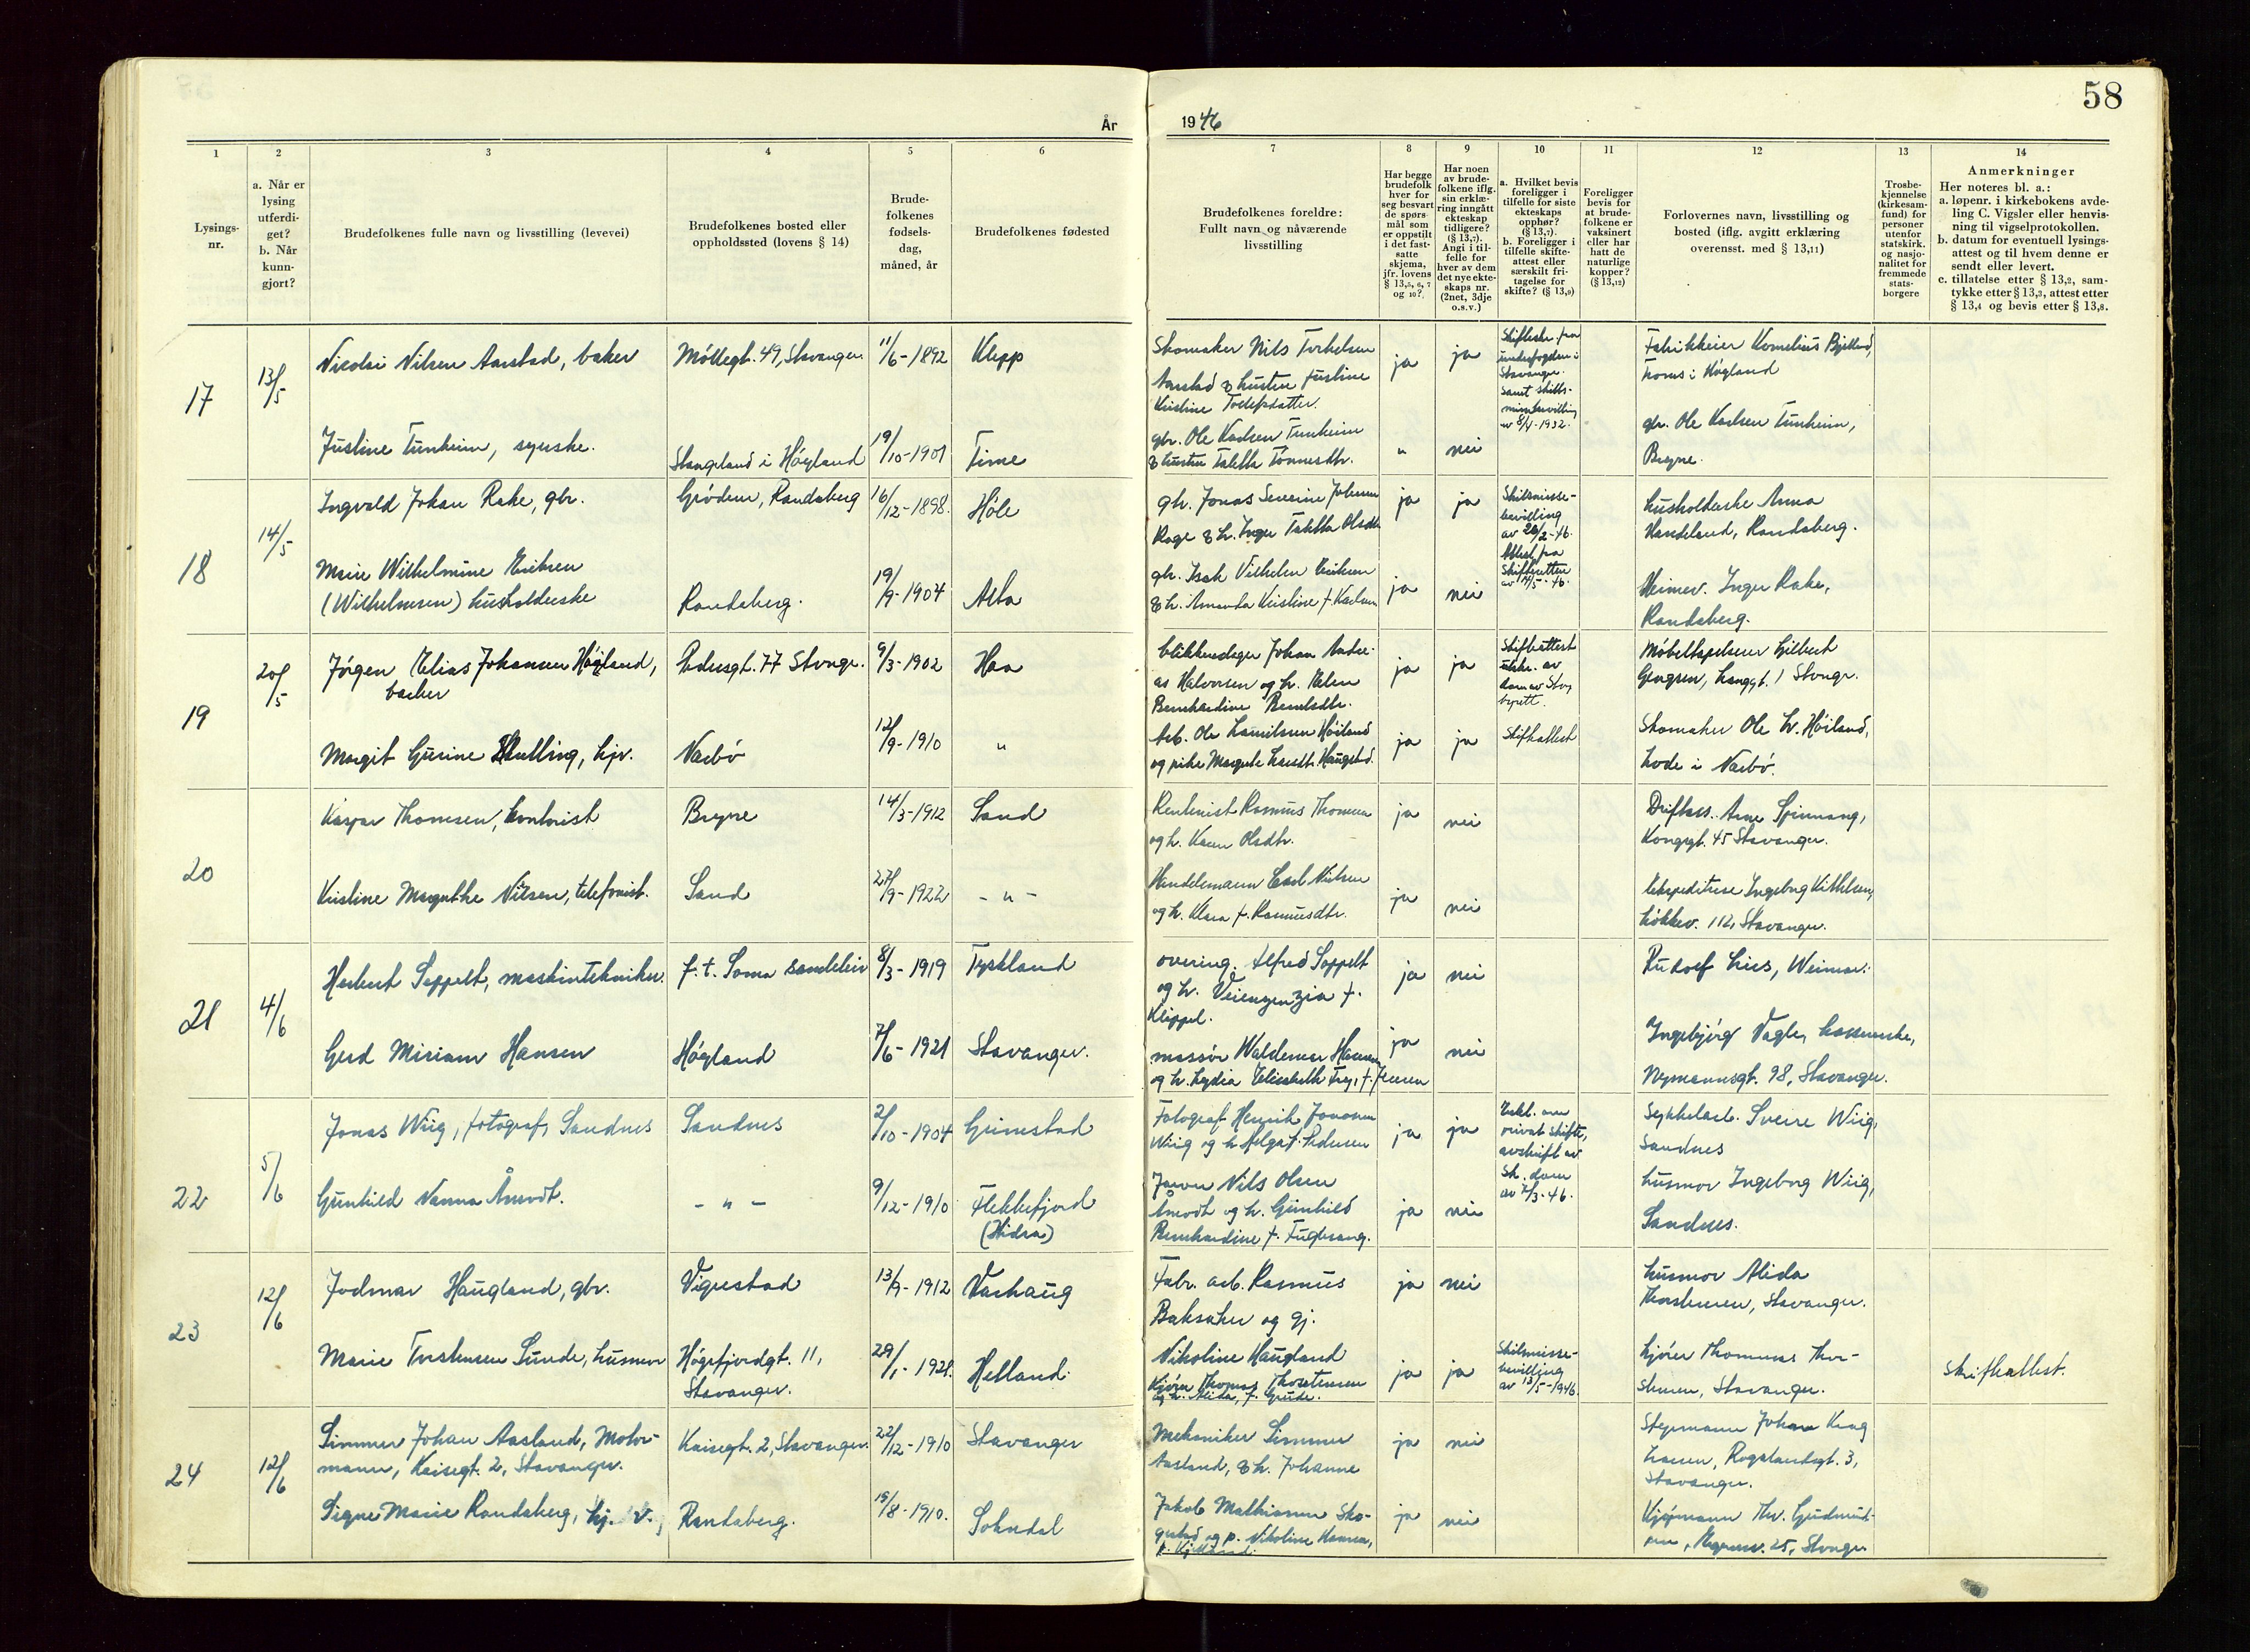 58
År
1946
1
2
3
4
5
6
7
8
9
10
11
12
13
14
Lysings-
nr.
a. Når er
lysing
utferdi-
get?
b. Når
kunn-
gjort?
Brudefolkenes fulle navn og livsstilling (levevei)
Brudefolkenes bosted eller
oppholdssted (lovens § 14)
Brude-
folkenes
fødsels-
dag,
måned, år
Brudefolkenes fødested
Brudefolkenes foreldre:
Fullt navn og nåværende
livsstilling
Har begge
brudefolk
hver for
seg besvart
de spørs-
mål som
er oppstilt
i det fast-
satte
skjema,
jfr. lovens
§ 13,5, 6, 7
og 10?
Har noen
av brude-
folkene iflg.
sin erklæ-
ring inngått
ekteskap
tidligere?
(§ 13,7).
Angi i til-
felle for
hver av dem
det nye ekte-
skaps nr.
(2net, 3dje
o.s.v.)
a. Hvilket bevis
foreligger i
tilfelle for siste
ekteskaps
opphør?
(§ 13,7).
b. Foreligger i
tilfelle skifte-
attest eller
særskilt fri-
tagelse for
skifte? (§ 13,9)
Foreligger
bevis for
at brude-
folkene er
vaksinert
eller har
hatt de
naturlige
kopper?
(§ 13,12)
Forlovernes navn, livsstilling og
bosted (iflg. avgitt erklæring
overensst. med § 13,11)
Trosbe-
kjennelse
(kirkesam-
fund) for
personer
utenfor
statskirk.
og nasjo-
nalitet for
fremmede
stats-
borgere
Anmerkninger
Her noteres bl. a.:
a. løpenr. i kirkebokens avde-
ling C. Vigsler eller henvis-
ning til vigselprotokollen.
b. datum for eventuell lysings-
attest og til hvem denne er
sendt eller levert.
c. tillatelse etter § 13,2, sam-
tykke etter § 13,3, attest etter
§ 13,4 og bevis etter § 13,8.
17
13/5
Nicolai Nilsen Aarstad, baker
Møllegt. 49, Stavanger.
11/6-1892
Klepp
Skomaker Nils Torkelsen
Aarstad & hustru Justine
Kristine
ja
ja
Skifteatt. fra
Stavanger.
samt skils-
av 8/4-1932.
Fabrikkeier Kornelius
Foros i Høgland
Justine Tunheim, syerske.
Stangeland i Høyland
19/10-1901
Time
gbr. Ole Karlsen Tunheim
& hustru Taletta Tønnesdtr.
"
nei
gbr. Ole Karlsen Tunheim,
Bryne.
18
14/5
Ingvald Johan Rake, gbr.
Grødem, Randaberg
16/12-1898.
Høle
gbr. Jonas Severine Johnsen
Rage & h. Inger Taletta Olsdtr.
ja
ja
Skilsmisse-
bevilling
av 26/2-46.
Attest fra
Skifteretten
av 14/5-46.
husholderske Anna
Handeland, Randaberg.
Marie Wilhelmine Eriksen
(Wilhelmsen) husholderske
Randaberg.
19/9-1904
Alta
gbr. Isak Vilhelm Eriksen
& h. Amanda Kristine f. Karlsen
ja
nei
Heimev. Inger Rake,
Randaberg.
19
20/5
Jørgen Elias Johansen Høgland,
baker
Pedersgt. 77 Stvngr.
9/3-1902
Haa
blikkenslager Johan Andre-
as Halvorsen og h. Elen
Bernhardine Berntsdtr.
ja
ja
Skifteattest
utskr. av
dom av Stvg
byrett.
Møbeltapetserer Gilbert
Gengsen, Langgt. 1 Stvngr.
Margit Gurine, hjv.
Nærbø
12/9-1910
"
Arb. Ole Høiland
og pike Margrete Haugstad.
ja
ja
skifteattest
Skomaker Ole H. Høiland,
Lode i Nærbø.
20
Kaspar Thomsen, kontorist
Bryne
14/3-1912
Sand
Rentenist Rasmus Thomsen
og h. Karen Olsdtr.
ja
nei
Driftass. Arne Spinnang,
Kongsgt. 45 Stavanger.
Kristine Margrethe Nilsen, telefonist.
Sand
27/9-1922
- " -
Handelsmann Carl Nilsen
og h. Klara f. Rasmusdtr.
ja
nei
Ekspeditrise Ingeborg Kittelsen,
Løkkev. 112, Stavanger.
21
4/6
Herbert Seppelt, maskintekniker.
f. t. Soma sandeleir
8/3-1919
Tyskland
overing. Alfred Seppelt
og h. f.
Klippel.
ja
nei
Rudolf Lies, Weimar.
Gerd Miriam Hansen
Høgland
7/6-1921
Stavanger.
massør Waldemar Hansen
og h. Lydia Elisabeth f. Jensen
ja
nei
Ingebjørg Vagle, kassererske,
Nymannsgt. 98, Stavanger.
22
5/6
Jonas Wiig, fotograf, Sandnes
Sandnes
2/10-1904
Grimestad
Fotograf Henrik Jonassen
Wiig og h. Helga f. Pedersen
ja
ja
Erkl. om
privat skifte,
avskrift av
Sk. dom
av 7/3-46.
Sykkelarb. Sverre Wiig,
Sandnes
Gunhild Nanna Åmodt.
- " -
9/12-1910
Flekkefjord
(Hidra)
Nils Olsen
Åmodt og h. Gunhild
Bernhardine f. Fuglesang.
ja
nei
husmor Ingeborg Wiig,
Sandnes.
23
12/6
Jodmar Haugland, gbr.
Vigrestad
13/9-1912
Varhaug
Fabr. arb. Rasmus
Baksaker og gj.
Nikoline Haugland
ja
nei
husmor Alida
Thorstensen, Stavanger.
Marie Torstensen Sunde, husmor
Høgsfjordgt. 11,
Stavanger.
29/1-1921.
Helland.
Kjører Thomas Thorstensen
og h. Alida, f. Grude.
ja
ja
Skilsmisse-
bevilling
av 13/5-1946.
kjører Thommas Thor-
stensen, Stavanger.
Skifteattest.
24
12/6
Simmer Johan Aasland, Motor-
mann, Kaisegt. 2, Stavanger.
Kaisegt. 2, Stavanger.
22/12-1910
Stavanger
Mekaniker Simmer
Aasland, & h. Johanne
ja
nei
Styrmann Johan Krag
Larsen, Rogalandsgt. 3,
Stavanger.
Signe Marie Randaberg, hj. v.
Randaberg.
15/8-1910.
Sokndal
Jakob Mathiassen Sko-
gestad og p. Nikoline Hansen,
f. Kjelland.
ja
nei
Kjøpmann Thv. Gudmund-
sen, 25, Stvngr